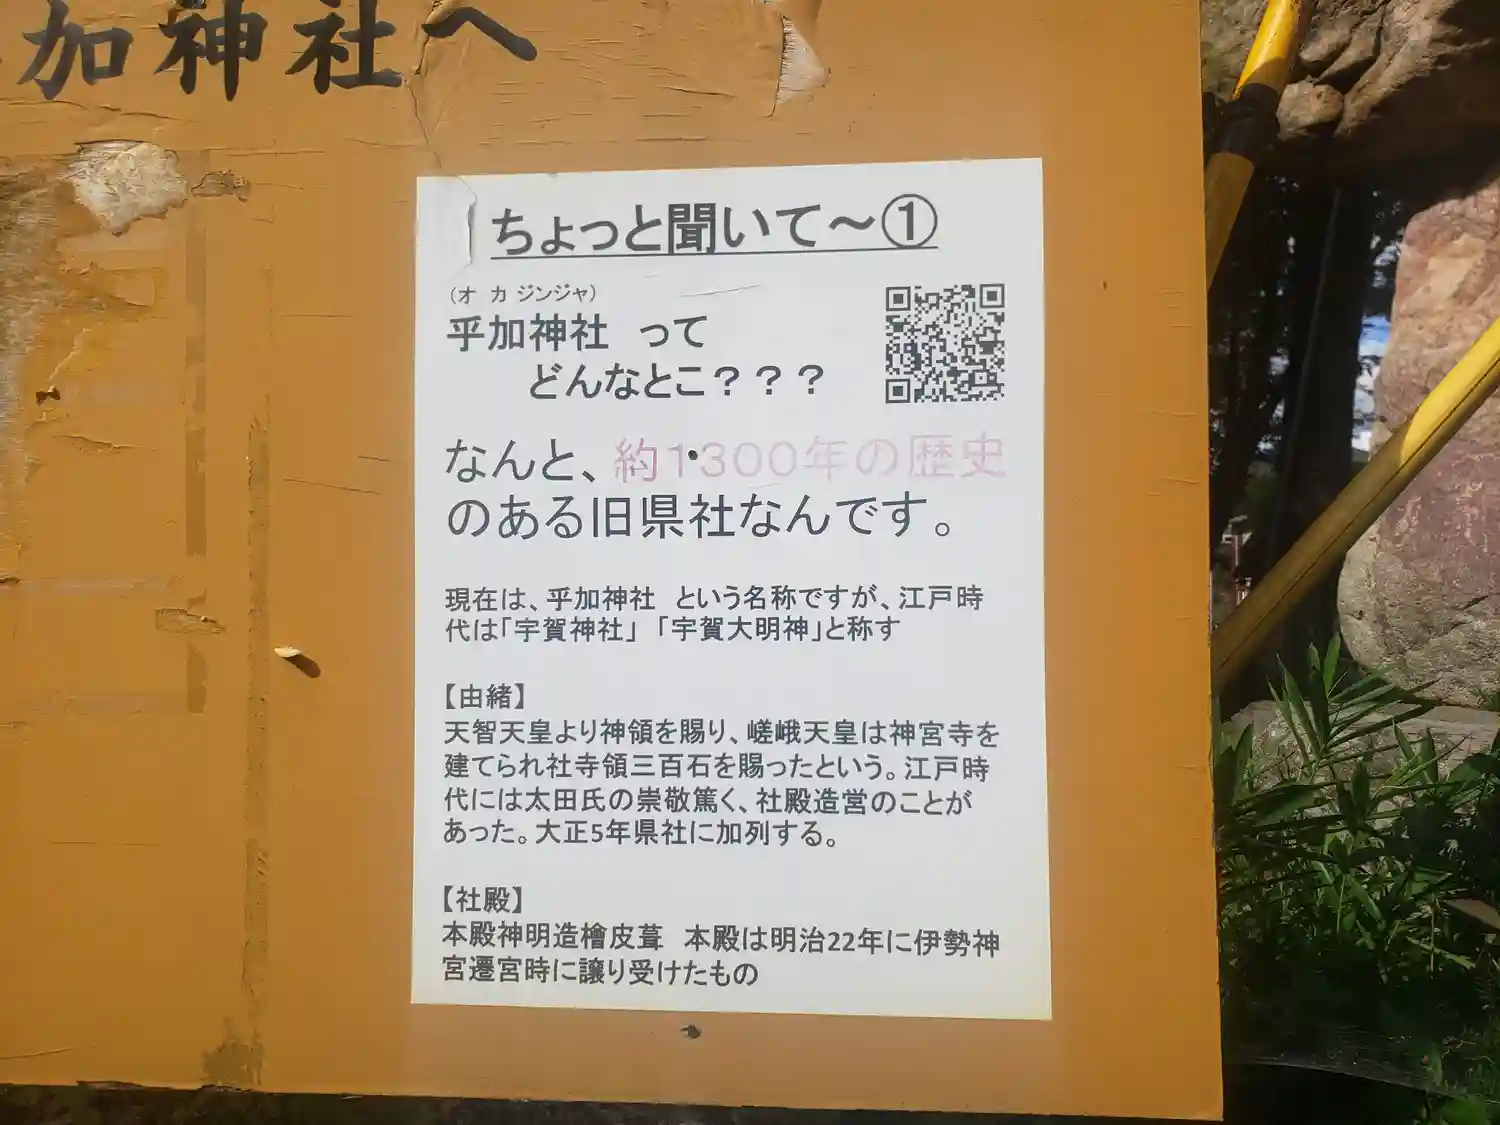 加神社へ
ちょっと聞いて～①
（オ カ ジンジャ）
乎加神社 って
どんなとこ？？？
なんと、約1300年の歴史
のある旧県社なんです。
現在は、乎加神社 という名称ですが、江戸時
代は「宇賀神社」「宇賀大明神」と称す
【由緒】
天智天皇より神領を賜り、嵯峨天皇は神宮寺を
建てられ社寺領三百石を賜ったという。江戸時
代には太田氏の崇敬篤く、社殿造営のことが
あった。大正5年県社に加列する。
【社殿】
本殿神明造檜皮葺 本殿は明治22年に伊勢神
宮遷宮時に譲り受けたもの